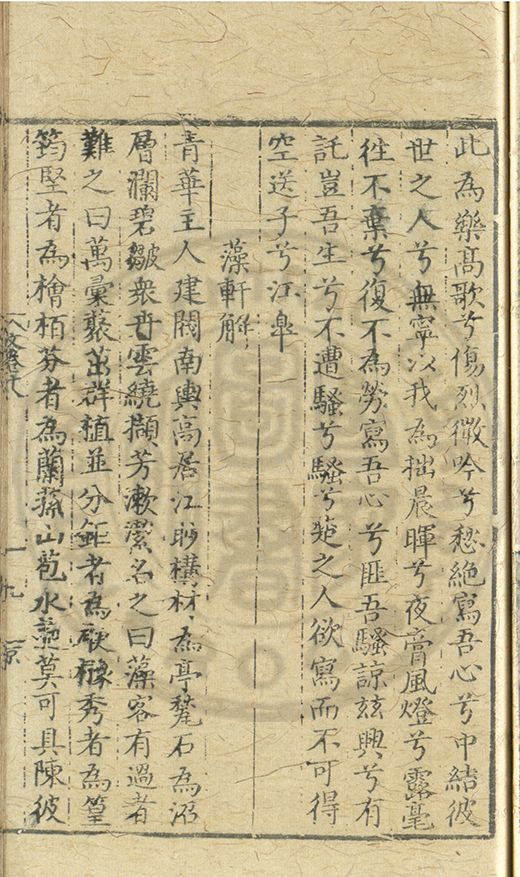 此為樂高歌兮傷烈微吟兮愁絶寫吾心兮中結彼
世之人兮無寧以我為拙晨暉兮夜膏風燈兮露毫
徃不棄兮復不為勞寫吾心兮匪吾騷諒玆興兮有
託豈吾生兮不遭騷兮騷兮楚之人欲寫而不可得
空送子兮江臯
藻軒解
青華主人建閥南輿高居江眇構材為亭甃石為沼
層瀾碧皺衆卉雲繞擷芳漱潔名之曰藻客有過者
難之曰萬彙褎茁群植並分鉅者為秀者為篁
筠堅者為檜栢芬者為蘭蓀山苞水莫可具陳彼
一九